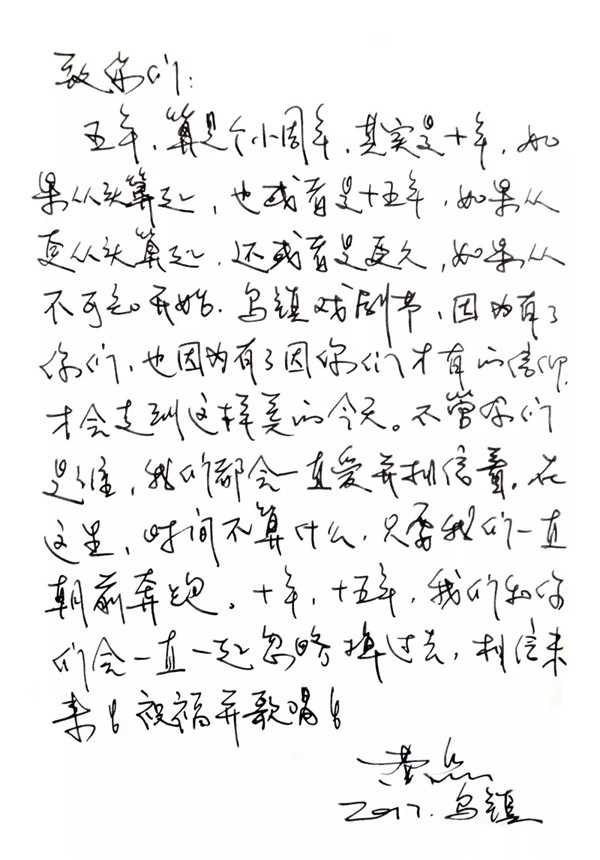 致你们：
五年，算是个小周年，其实是十年，如
果从头算起，也或者是十五年，如果从
更从头算起，还或者是更久，如果从
不可知开始。乌镇戏剧节，因为有了
你们，也因为有了因你们才有的信仰，
才会走到这样美的今天。不管你们
是谁，我们都会一直爱并相信着。在
这里，时间不算什么，只要我们一直
朝前奔跑。十年，十五年，我们和你
们会一直一起忽略掉过去，相信未
来！祝福并歌唱！
黄磊
2017.乌镇